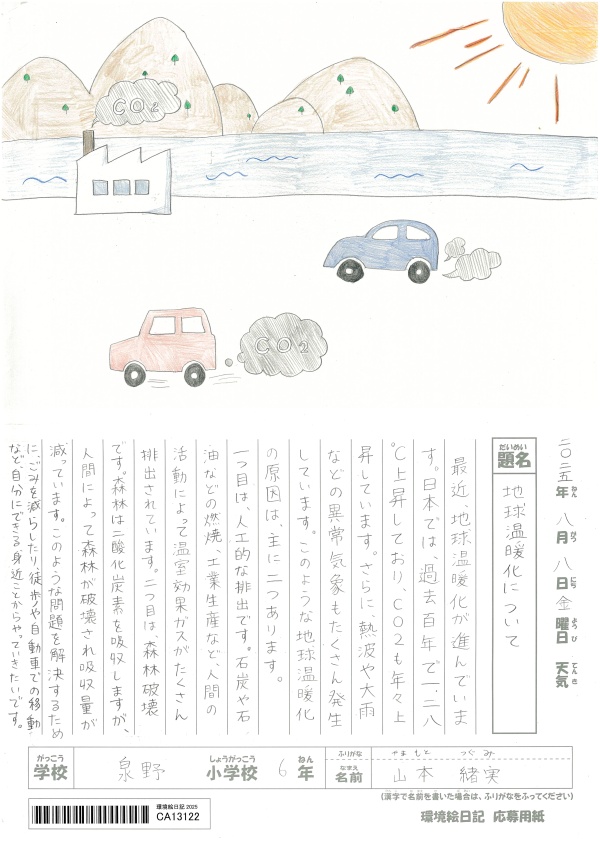 CO2
CO2
二〇二五年 八月 八日 金曜日 天気
ねん がつ にち ようび てんき
だいめい
題名 地球温暖化について
最近、地球温暖化が進んでいま
す。日本では、過去百年で一.二八
℃上昇しており、CO2も年々上
昇しています。さらに、熱波や大雨
などの異常気象もたくさん発生
しています。このような地球温暖化
の原因は、主に二つあります。
一つ目は、人工的な排出です。石炭や石
油などの燃焼、工業生産など、人間の
活動によって温室効果ガスがたくさん
排出されています。二つ目は、森林破壊
です。森林は二酸化炭素を吸収しますが、
人間によって森林が破壊され吸収量が
減っています。このような問題を解決するため
に、ごみを減らしたり、徒歩や自動車での移動
など、自分にできる身近ことからやっていきたいです。
がっこう しょうがっこう ねん ふりがな やまもと つぐみ
学校 泉野 小学校 6年 なまえ 名前 山本 緒実
(漢字で名前を書いた場合は、ふりがなをふってください)
環境絵日記2025
CA13122
環境絵日記 応募用紙